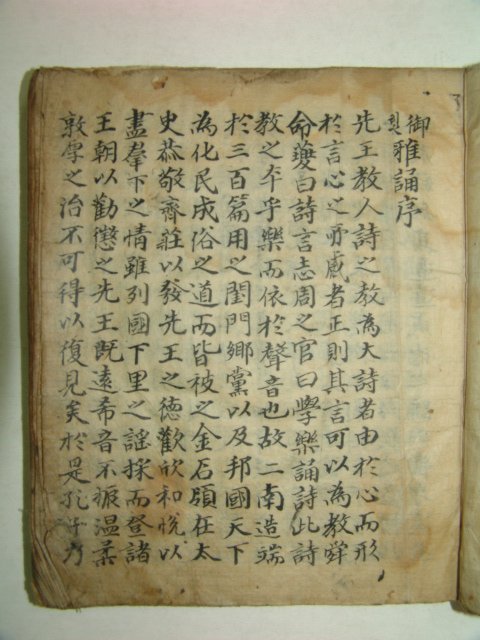 御製雅誦序
先王教人詩之教為大詩者由於心而形
於言心之所感者正則其言可以為教舜
命夔曰詩言志周之官曰學樂誦詩此詩
教之本乎樂而依於聲音也故二南造端
於三百篇用之閨門鄉黨以及邦國天下
為化民成俗之道而皆被之金石領在太
史恭敬齊莊以發先王之德歡欣和悅以
盡羣下之情雖列國下里之謠採而登諸
王朝以勸懲之先王既遠希音不振温柔
敦厚之治不可得以復見矣於是孔子乃